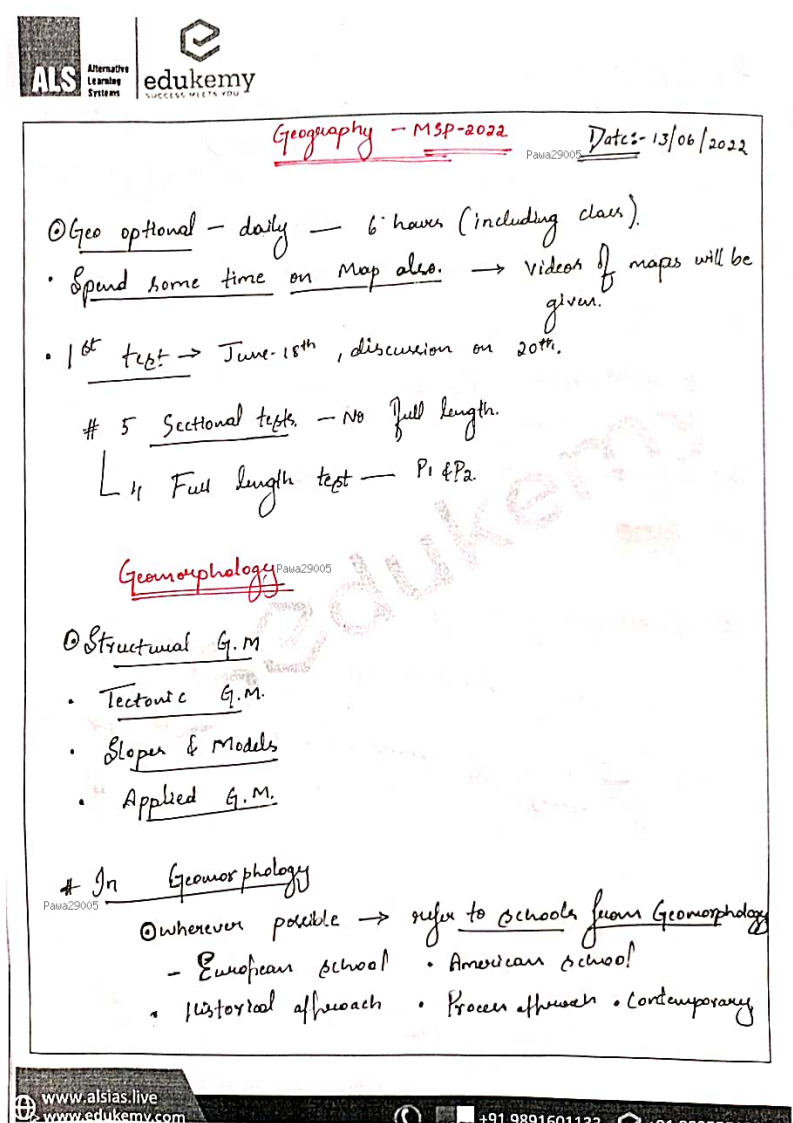 ALS Alternative Learning Systems
edukemy
SUCCESS MEETS YOU
Geography - MSP-2022
Pawa29005
Date:- 13/06/2022
Geo optional - daily — 6 hours (including class).
• Spend some time on Map also. → Videos of maps will be
given.
• 1st test → June-18th, discussion on 20th.
# 5 Sectional tests. - No full length.
4 Full length test — P1 & P2.
Geomorphology
Pawa29005
Structural G.M
• Tectonic G.M.
• Slopes & Models
• Applied G.M.
# In Geomorphology
Pawa29005
wherever possible → refer to schools from Geomorphology
- European school • American school
• Historical approach • Process approach • Contemporary
edukemy
www.alsias.live
www.edukemy.com
+91 9891601132